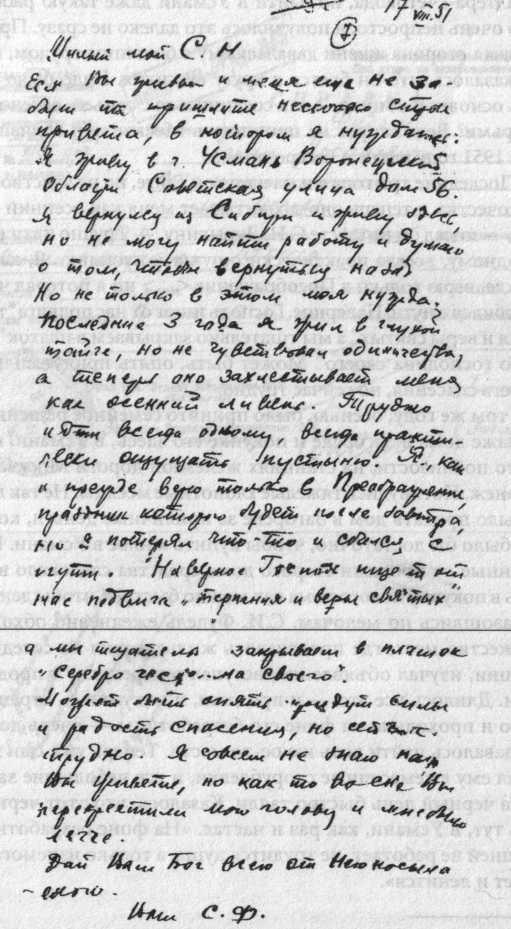 7
VIII.51
7
Милый мой С. Н
Если Вы живы и меня еще не за
были то пришлите несколько строк
привета, в котором я нуждаюсь.
Я живу в г. Усмань Воронежской
области Советская улица дом 56.
Я вернулся из Сибири и живу здесь
но не могу найти работу и думаю
о том, чтобы вернуться назад
Но не только в этом моя нужда.
Последние 3 года я жил в глухой
тайге, но не чувствовал одиночества,
а теперь оно захлестывает меня
как осенний ливень. Трудно
идти всегда одному, всегда практи-
чески ощущать пустыню. Я, как
и прежде верю только в Преображение,
праздник которого будет после завтра
но я потерял что-то и сбился с
пути. Наверное Господь ищет от
нас подвига „терпения и веры святых"
а мы тщательно закрываем в платок
„серебро
своего"
Может быть опять придут силы
и радость спасения, но сейчас
трудно. Я совсем не знаю как
Вы живете, но как то во сне Вы
перекрестили мою голову и мне было
легче.
Дай Вам Бог всего от Него
Ваш С. Ф.